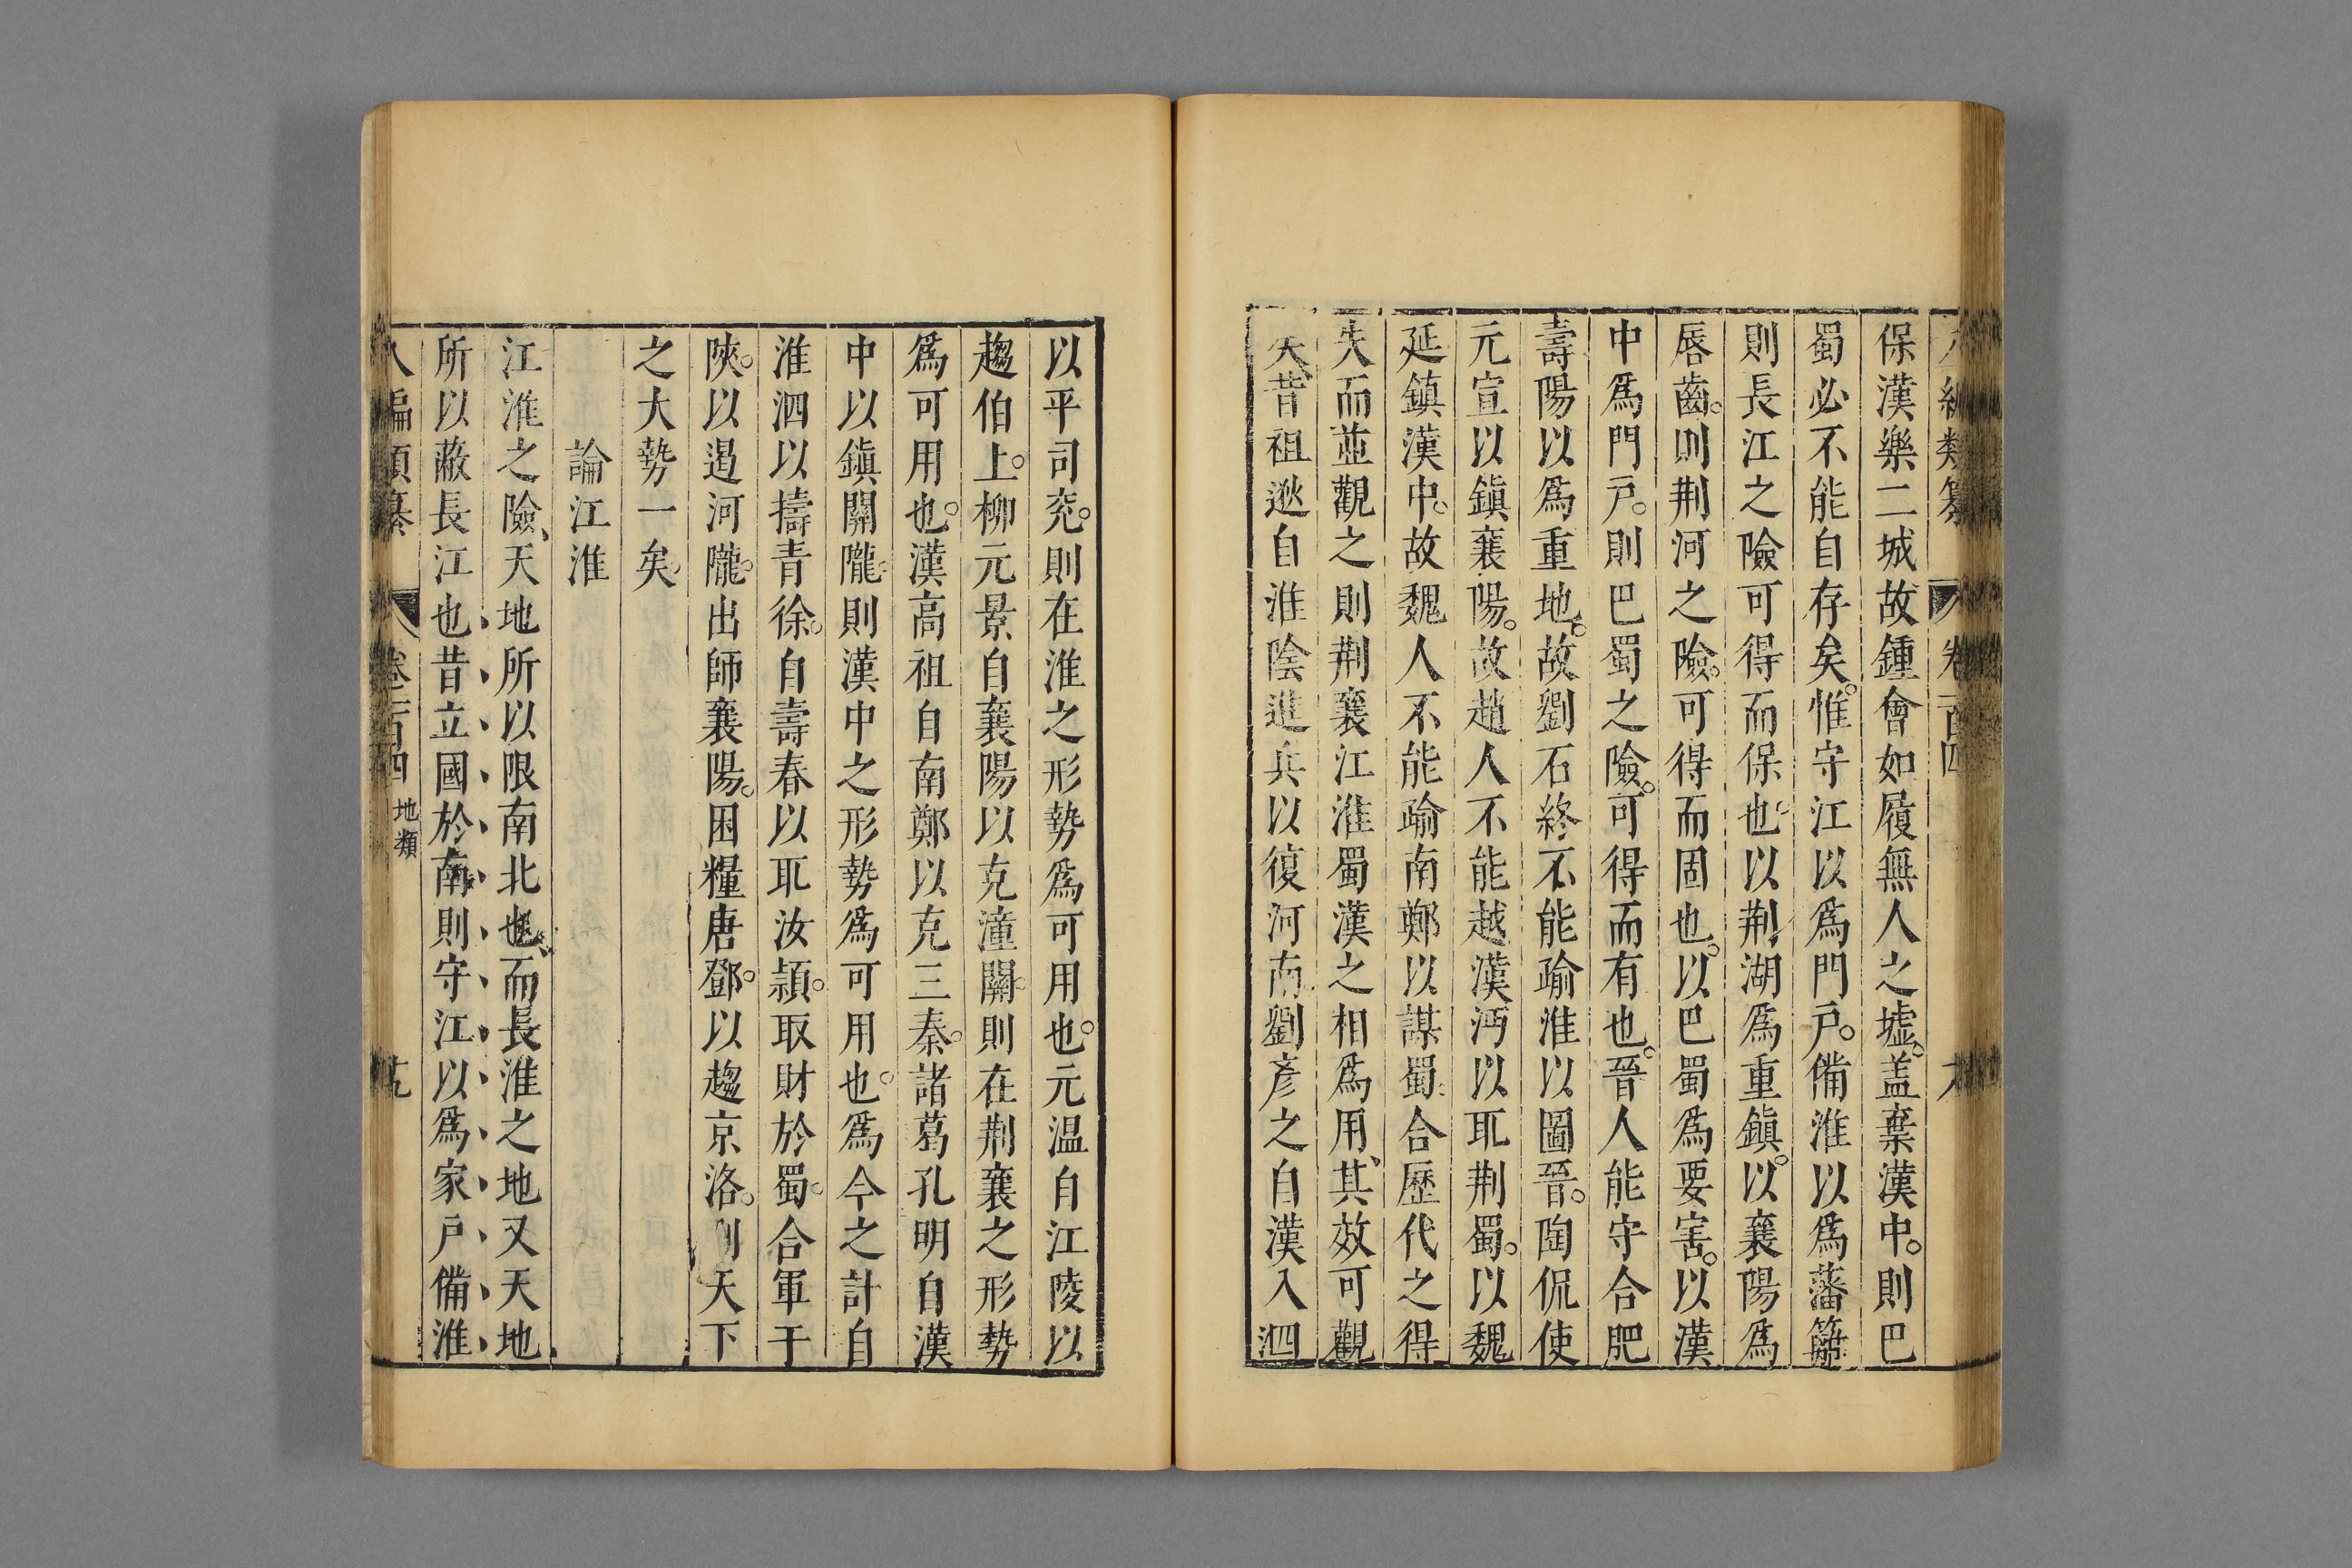 保漢樂二城故鍾會如履無人之墟。盖棄漢中。則巴
蜀必不能自存矣。惟守江以爲門戸。備淮以爲藩籬
則長江之險可得而保也。以荆湖爲重鎭。以襄陽爲
唇齒。則荆河之險。可得而固也。以巴蜀爲要害。以漢
中爲門戸。則巴蜀之險。可得而有也。晉人能守合肥
壽陽以爲重地。故劉石終不能踰淮以圖晉。陶侃使
元宣以鎭襄陽。故趙人不能越漢沔以耴荆蜀。以魏
延鎭漢中。故魏人不能踰南鄭以謀蜀。合歷代之得
失而並觀之則荆襄江淮蜀漢之相爲用、其效可觀
矣昔祖逖自淮陰進兵以復河南劉彥之自漢入泗
以平司兖。則在淮之形勢爲可用也。元温自江陵以
趨伯上。柳元景自襄陽以克潼關。則在荆襄之形勢
爲可用也。漢高祖自南鄭以克三秦。諸葛孔明自漢
中以鎭關隴。則漢中之形勢爲可用也。爲今之計自
淮泗以擣青徐。自壽春以耴汝頴。取財於蜀。合軍于
陝。以遏河隴。出師襄陽。困糧唐鄧。以趨京洛。則天下
之大勢一矣
論江淮
江淮之險、天地所以限南北也、而長淮之地又天地
所以蔽長江也昔立國於南則守江以爲家戸備淮
八編類纂 卷一百四 地類